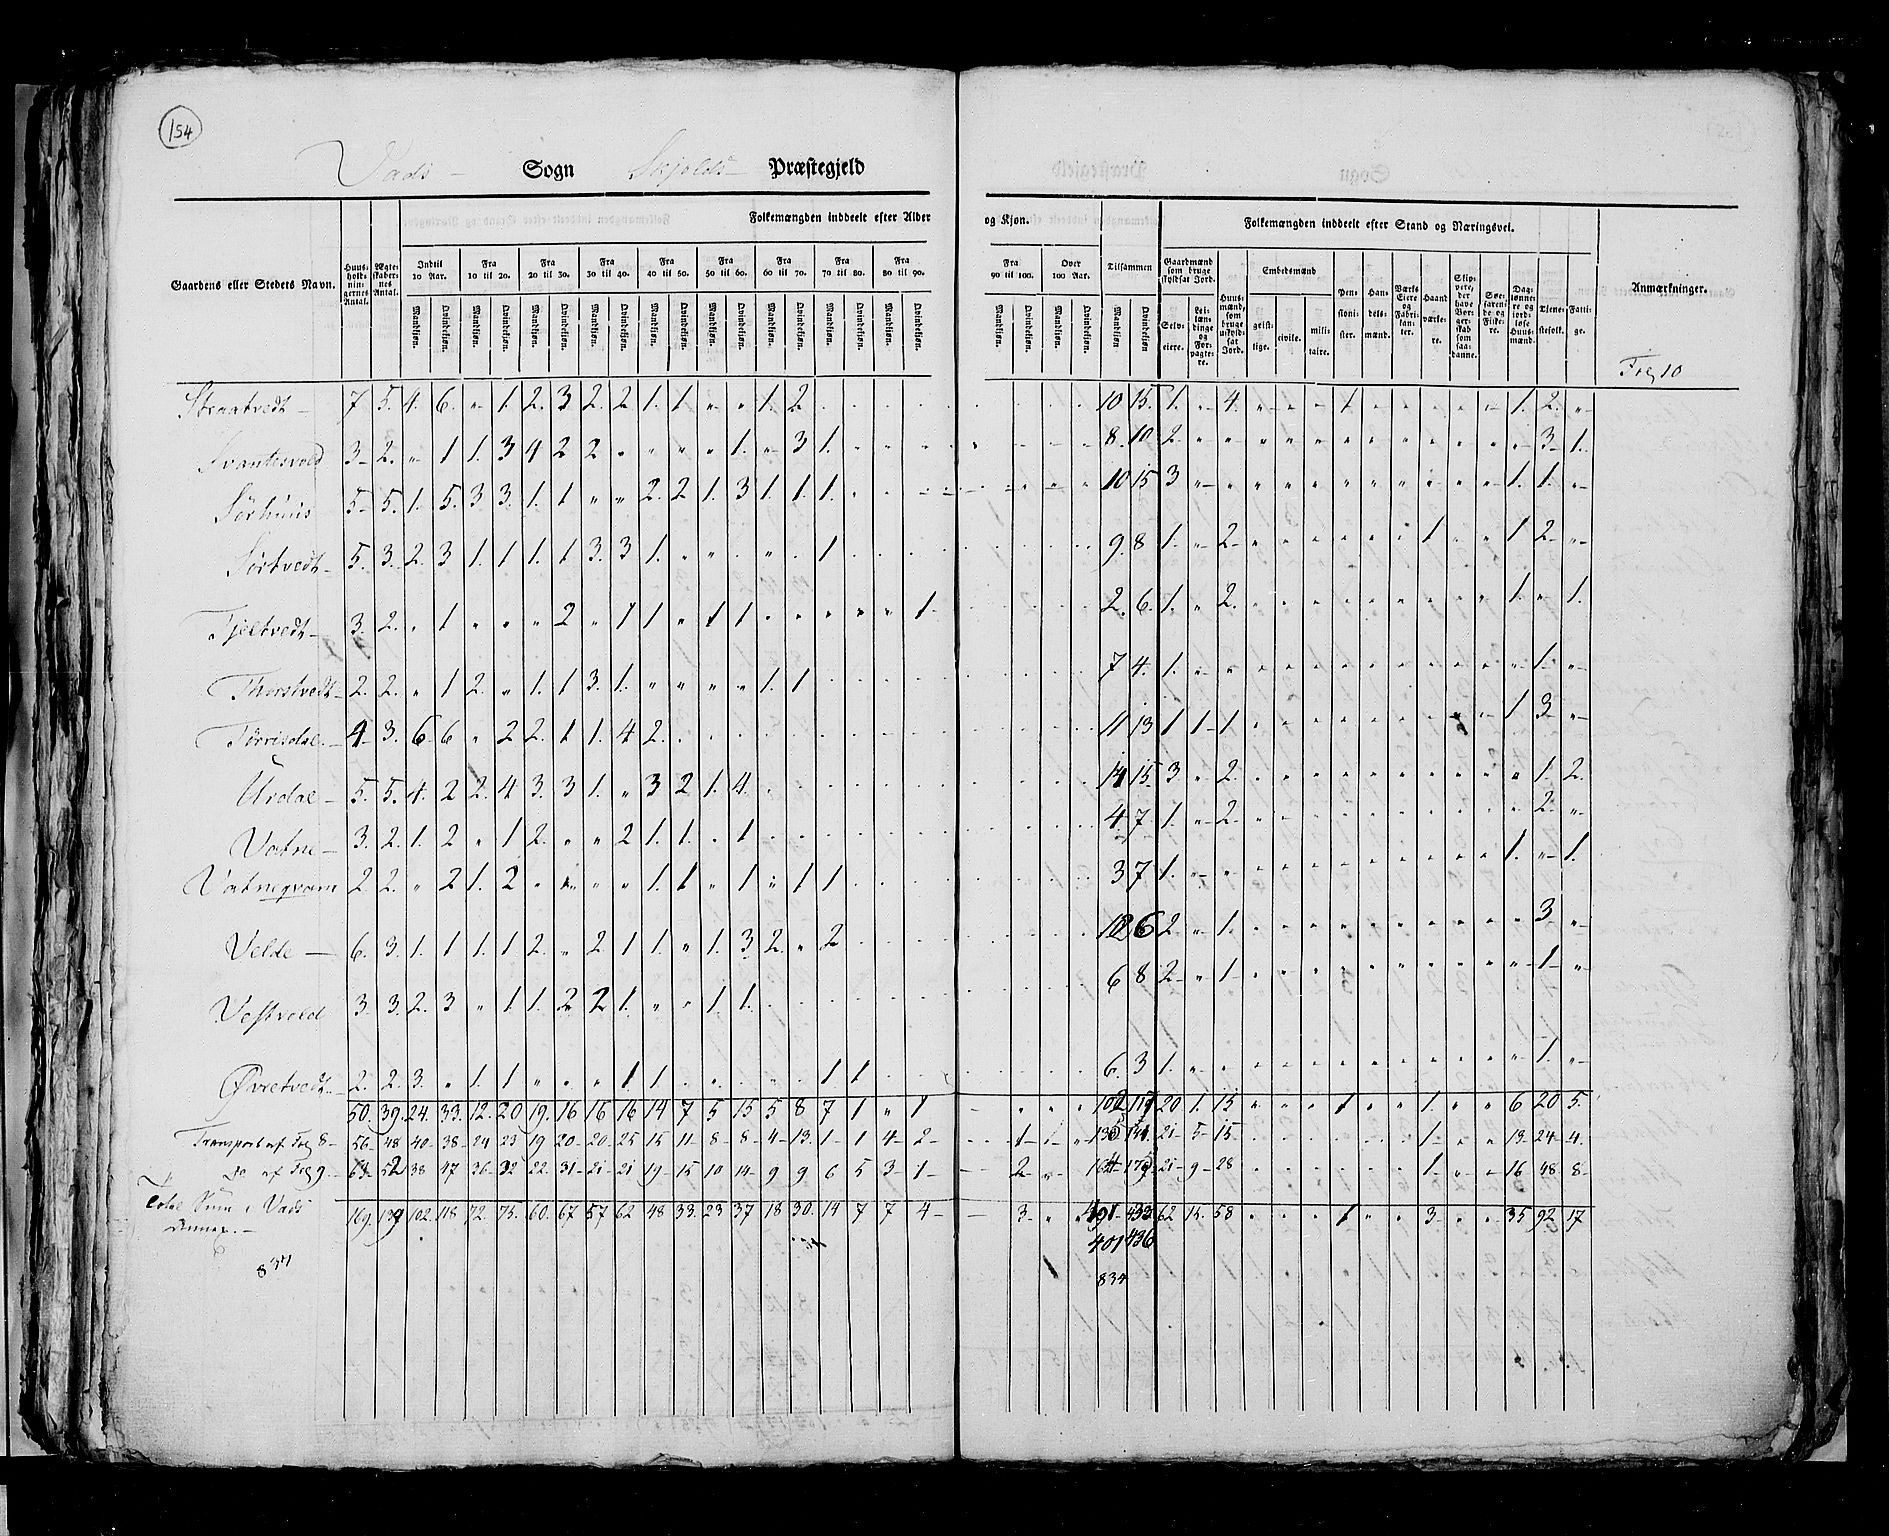 154
Vads Sogn Skjolds Præstegjeld
Folkemængden inddeelt efter Alder og Kjøn.
Folkemængden inddeelt efter Stand og Næringsvei.
Gaardens eller Stedets Navn.
Huus-holdnin-gernes Antal.
Ægte-skaber-nes Antal.
Indtil 10 Aar.
Fra 10 til 20.
Fra 20 til 30.
Fra 30 til 40.
Fra 40 til 50.
Fra 50 til 60.
Fra 60 til 70.
Fra 70 til 80.
Fra 80 til 90.
Fra 90 til 100.
Over 100 Aar.
Tilsammen
Mandkjøn. Qvindekjøn.
Gaardmænd som bruge skyldsat Jord.
Selv-eiere.
Lei-læn-dinge og For-pagte-re.
Huus-mænd, som bruge uskyld-sat Jord.
Embedsmænd
geist-lige. civile. mili-taire.
Pen-sioni-ster.
Han-dels-mænd.
Værks Eiere og Fabri-kan-ter.
Haand værke-re.
Skip-pere, der have Bor-ger-skab som saa-danne.
Søe-farende og Fiske-re.
Dag-lønne-re og jord-løse Huus-mænd.
Tjene-stefolk.
Fatti-ge.
Anmærkninger.
Fol. 10
Straatvedt 7 5. 4. 6. „ 1. 2. 3 2. 2 1. 1 „ „ 1. 2. 10 15. 1. „ 4. „ „ „ 1 „ „ „ „ „ 1. 2. „
Svantesvold 3 2. „ 1 1. 3 4 2 2 „ „ „ „ 1. „ 3 1. 8. 10 2 „ „ „ „ „ „ „ „ „ „ „ „ 3 1.
Sørhuus 5 5. 1. 5. 3 3. 1. 1 „ „ 2. 2 1. 3 1. 1. 1. 10 15 3 „ „ „ „ „ „ „ „ „ „ „ 1. 1. „
Sørtvedt 5. 3. 2. 3 1. 1 1. 1 3. 3 1. „ „ „ „ 1 9. 8 1. „ 2 „ „ „ „ „ „ 1 „ „ 1 2 „
Tjeltvedt 3. 2. „ 1 „ „ „ 2 „ 1 1 „ 1 1. „ „ „ „ „ 1 2. 6. 1. „ 2. „ „ „ „ „ „ „ „ „ 1. „ 1.
Thorstvedt 2. 2. „ 1 2. „ 1. 1 3. 1. „ „ „ „ 1. 1 7 4. 1. „ „ „ „ „ „ „ „ „ „ „ „ 1 „
Tørrisdal 4 3. 6 6 „ 2 2. 1 1. 4 2. 11 13 1 1 1 „ „ „ „ „ „ „ „ „ 1 3 „
Urdal 5. 5. 4. 2 2. 4 3. 3 1. „ 3 2 1. 4. 14 15 3 „ 2. „ „ „ „ „ „ „ „ „ „ 1. 2.
Vatne 3. 2. 1. 2 „ 1 2. „ „ 2 1. 1. „ 1 4. 7. 1. „ 2 „ „ „ „ „ „ „ „ „ „ 2 „
Vatneqvam 2. 2. „ 2 1. 2 „ „ „ „ 1. 1 „ 1 „ 1 1 3 7 1. „ „ „ „ „ „ „ „ „ „ „ 1. „ 1.
Velde 6. 3. 1. 1 1. 1 2. „ 2 1 1. „ 1. 3 2. „ 2 12 6 2 „ 1. „ „ „ „ „ „ „ „ „ „ 3 „
Vestvold 3. 3. 2. 3 „ 1 1. 2 2 1. „ „ 1 1. 6 8 2 „ 1 „ „ „ „ „ „ „ „ „ „ 1 „
Øvretvedt 2. 2. 3. „ 1. 1 „ „ „ 1 1. „ „ „ „ „ 1 1. 6. 3 1. „ „ „ „ „ „ „ „ „ „ „ „ 1. „
50. 39. 24. 33. 12. 20 19. 16 16 16 14 7 5 15 5 8 7 1 „ 1 102 117 20 1. 15 „ „ „ 1 „ „ 1. „ „ 6 20 5.
Transport af Fol. 8 56 48 40 38 24 23 19 20 20 25 15 11 8 8 4 13. 1 1 4 2 1 135 21 5 15 1 „ „ 13 24 4.
Do af Fol. 9 63 52 38 47 36 32 22. 31 21 21 19 15 10 14 9 9 6 5 3 1 2 21 9 28 1 „ „ 16 48 8
Total Sum i Vads Annex. 169. 139 102. 118 72. 75. 60. 67 57 62 48 33. 23 37 18 30. 14 7 7 4 3. „ „ 433 62 15. 58 „ „ „ 1 „ „ 3 „ „ 35 92 17
401 436
837
834